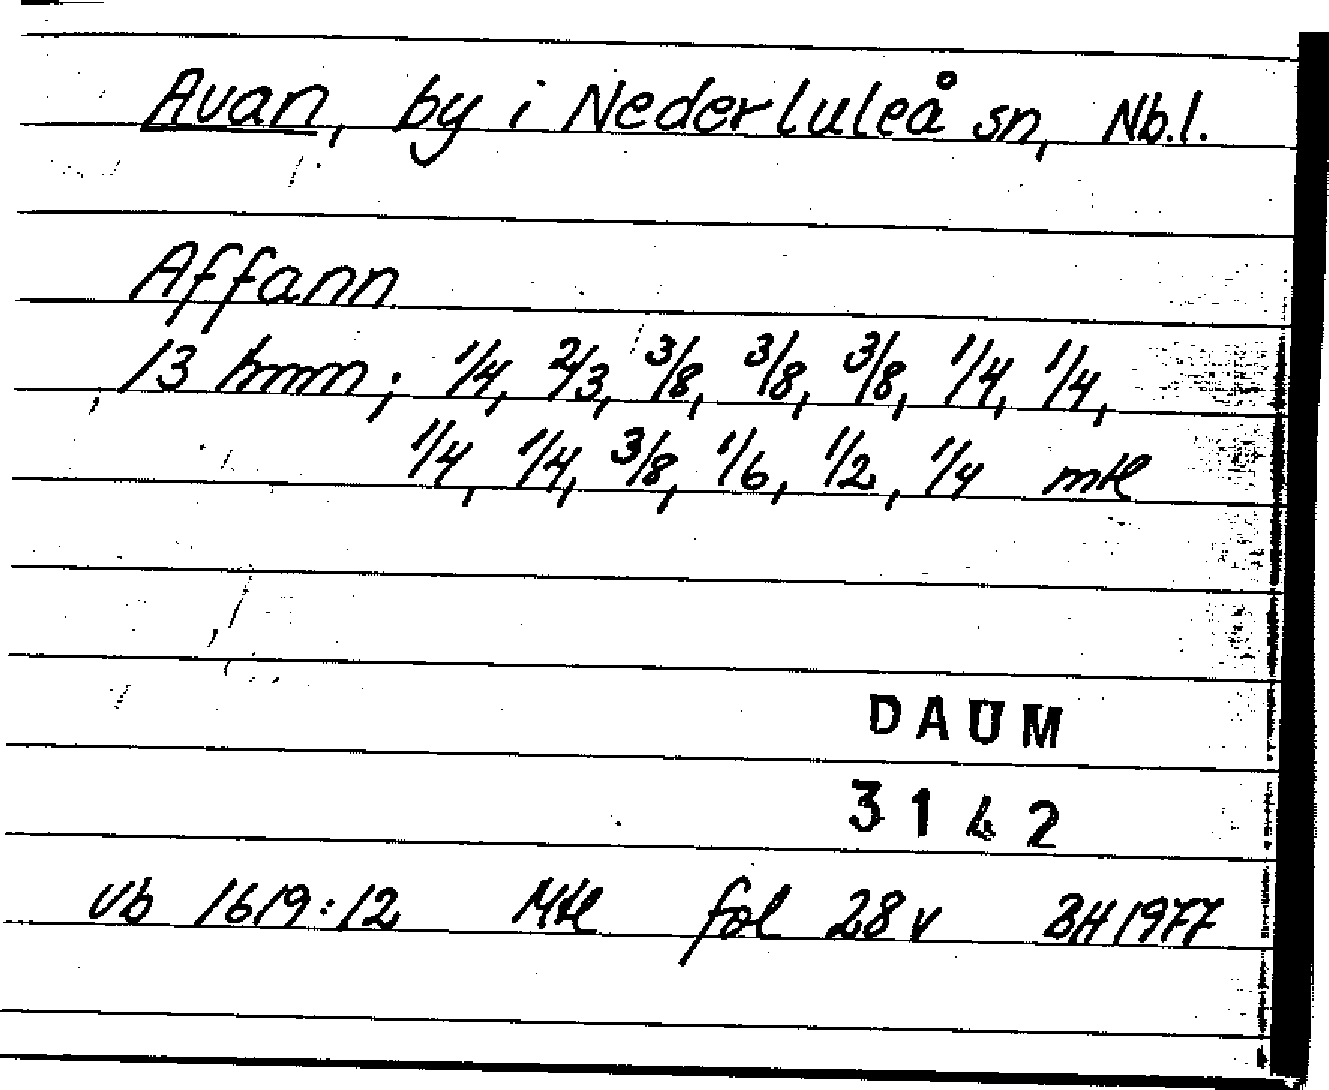 Avan, by i Nederluleå sn, Nb.l.
Affann
13 hmn; 1/4, 2/3, 3/8, 3/8, 3/8, 1/4, 1/4,
1/4, 1/4, 3/8, 1/6, 1/2, 1/4 mtl
DAUM
3142
Vb 1619:12 Mtl fol 28v BH 1977